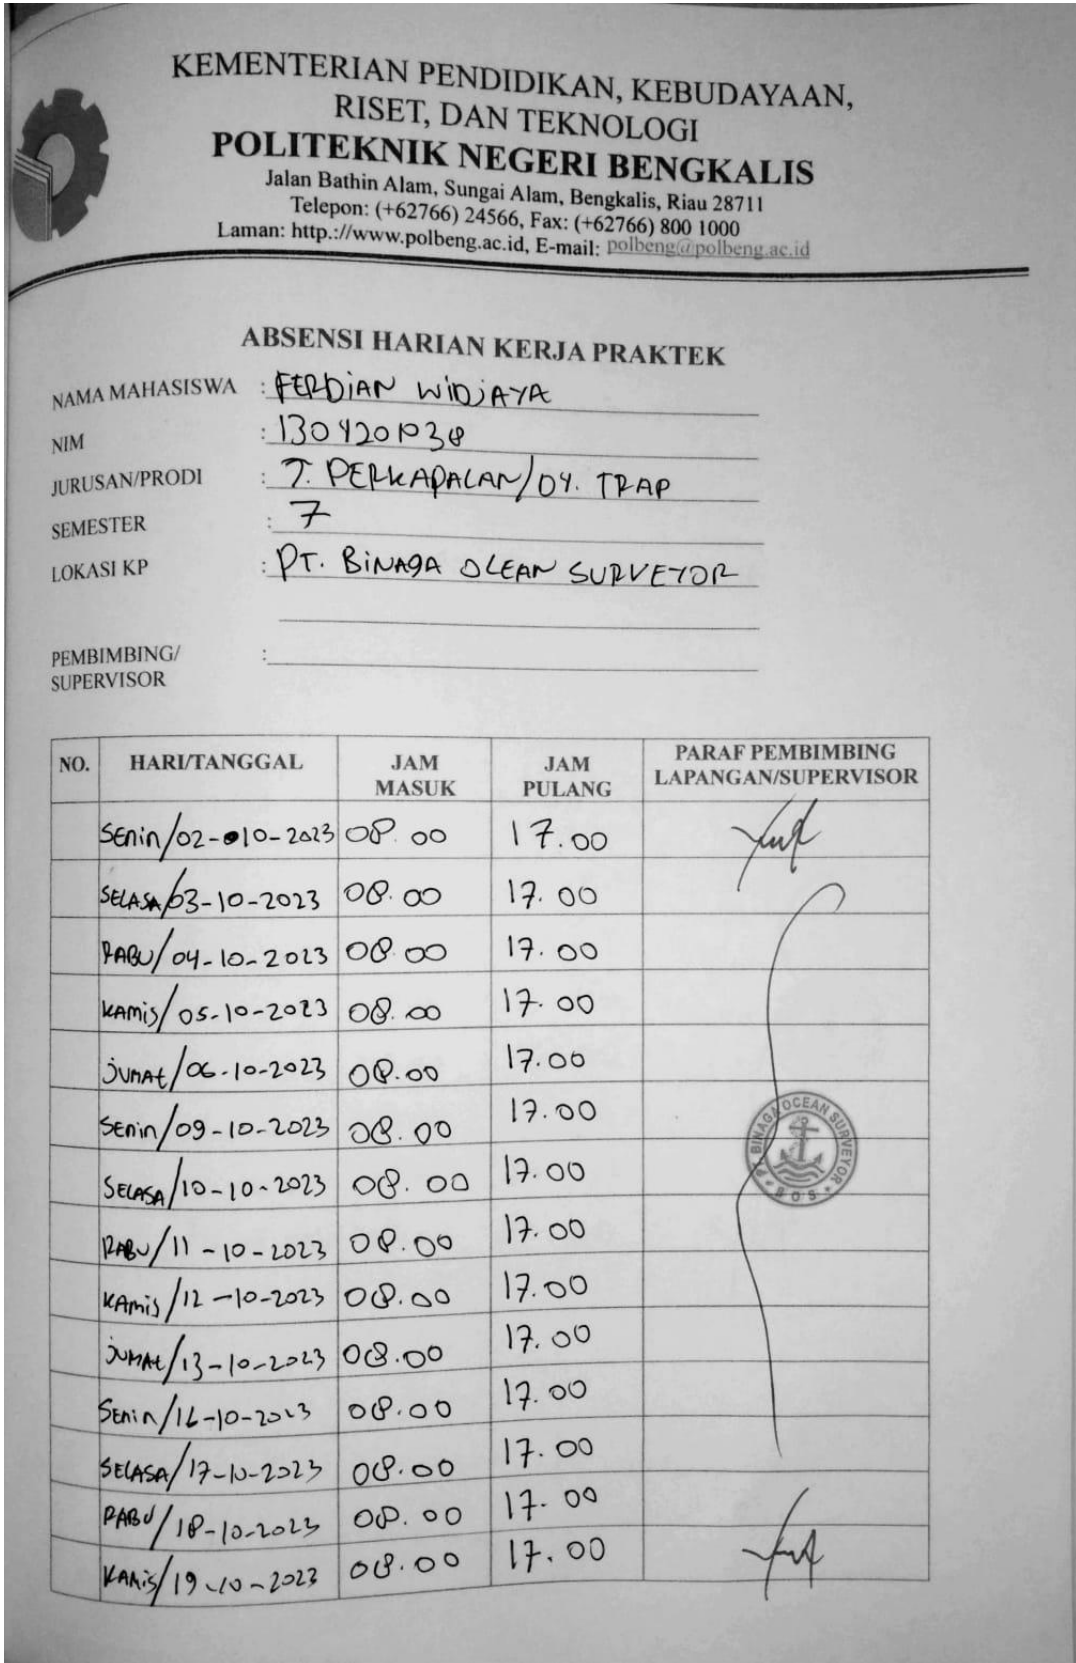 KEMENTERIAN PENDIDIKAN, KEBUDAYAAN,
RISET, DAN TEKNOLOGI
POLITEKNIK NEGERI BENGKALIS
Jalan Bathin Alam, Sungai Alam, Bengkalis, Riau 28711
Telepon: (+62766) 24566, Fax: (+62766) 800 1000
Laman: http.://www.polbeng.ac.id, E-mail: polbeng@polbeng.ac.id
ABSENSI HARIAN KERJA PRAKTEK
NAMA MAHASISWA : FERDIAN WIDJAYA
NIM :
JURUSAN/PRODI : T. PERKAPALAN/D4. TRAP
SEMESTER : 7
LOKASI KP : PT. BINAGA OCEAN SURVEYOR
PEMBIMBING/ :
SUPERVISOR
NO. HARI/TANGGAL JAM MASUK JAM PULANG PARAF PEMBIMBING LAPANGAN/SUPERVISOR
Senin/02-10-2023 08.00 17.00
SELASA/03-10-2023 08.00 17.00
RABU/04-10-2023 08.00 17.00
KAMIS/05-10-2023 08.00 17.00
JUMAt/06-10-2023 08.00 17.00
Senin/09-10-2023 08.00 17.00
SELASA/10-10-2023 08.00 17.00
RABU/11-10-2023 08.00 17.00
KAMIS/12-10-2023 08.00 17.00
JUMAt/13-10-2023 08.00 17.00
Senin/16-10-2023 08.00 17.00
SELASA/17-10-2023 08.00 17.00
RABU/18-10-2023 08.00 17.00
KAMIS/19-10-2023 08.00 17.00
PT. BINAGA OCEAN SURVEYOR
B O S